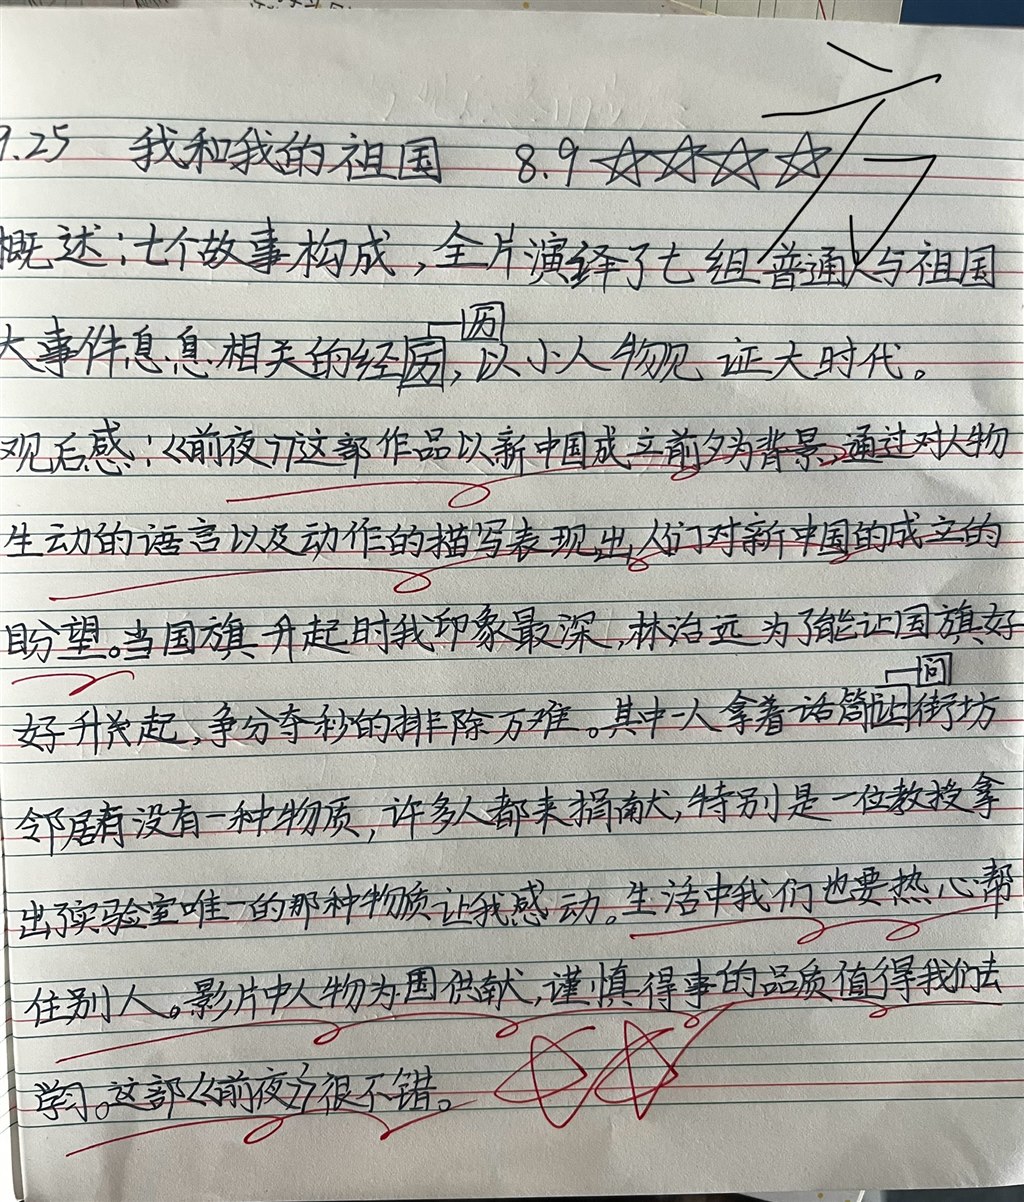 9.25 我和我的祖国 8.9 ☆☆☆☆
概述：七个故事构成，全片演绎了七组普通人与祖国
历
大事件息息相关的经历，以小人物见证大时代。
观后感：《前夜》这部作品以新中国成立前夕为背景，通过对人物
生动的语言以及动作的描写表现出人们对新中国的成立的
盼望。当国旗升起时我印象最深，林治远为了能让国旗好
问
好升起，争分夺秒的排除万难。其中一人拿着话筒问街坊
邻居有没有一种物质，许多人都来捐献，特别是一位教授拿
出了实验室唯一的那种物质让我感动。生活中我们也要热心帮
住别人。影片中人物为国供献，谨慎得事的品质值得我们去
学习。这部《前夜》很不错。